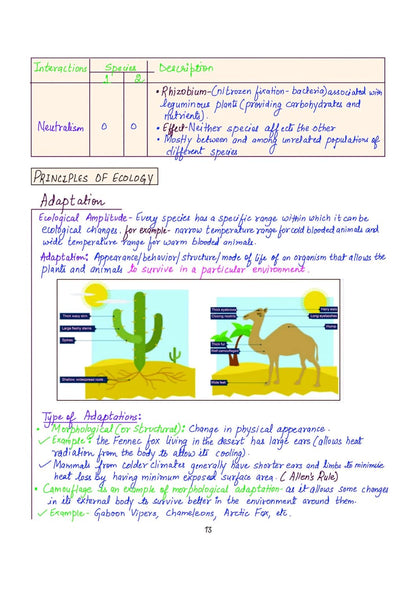 Interactions Species Description
1 2
• Rhizobium - (nitrozen fixation - bacteria) associated with
leguminous plants (providing carbohydrates and
nutrients).
Neutralism 0 0 • Effect - Neither species affects the other
• Mostly between and among unrelated populations of
different species
PRINCIPLES OF ECOLOGY
Adaptation
Ecological Amplitude - Every species has a specific range within which it can be
ecological changes. for example - narrow temperature range for cold blooded animals and
wide temperature range for warm blooded animals.
Adaptation: Appearance/behavior/structure/mode of life of an organism that allows the
plants and animals to survive in a particular environment.
Thick waxy skin
Large fleshy stems
Spines
Shallow, widespread roots
Thick eyebrows
Closing nostrils
Thick fur
Well camouflaged
Wide feet
Hairy ears
Long eyelashes
Hump
Type of Adaptations:
• Morphological (or Structural): Change in physical appearance.
✓ Example: the Fennec fox living in the desert has large ears (allows heat
radiation from the body to allow its cooling).
✓ Mammals from colder climates generally have shorter ears and limbs to minimise
heat loss by having minimum exposed surface area. (Allen's Rule)
• Camouflage is an example of morphological adaptation - as it allows some changes
in its external body to survive better in the environment around them.
✓ Example - Gaboon Vipers, Chameleons, Arctic Fox, etc.
13